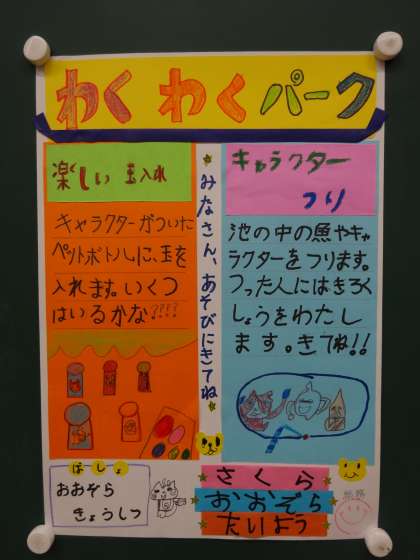 わくわくパーク
楽しい 玉入れ
キャラクターがついた
ペットボトルに、玉を
入れます。いくつ
はいるかな????
みなさん、あそびにきてね
キャラクター
つり
池の中の魚やキャ
ラクターをつります。
つった人にはきろく
しょうをわたし
ます。きてね!!
ばしょ
おおぞら
きょうしつ
さくら
おおぞら
たいよう